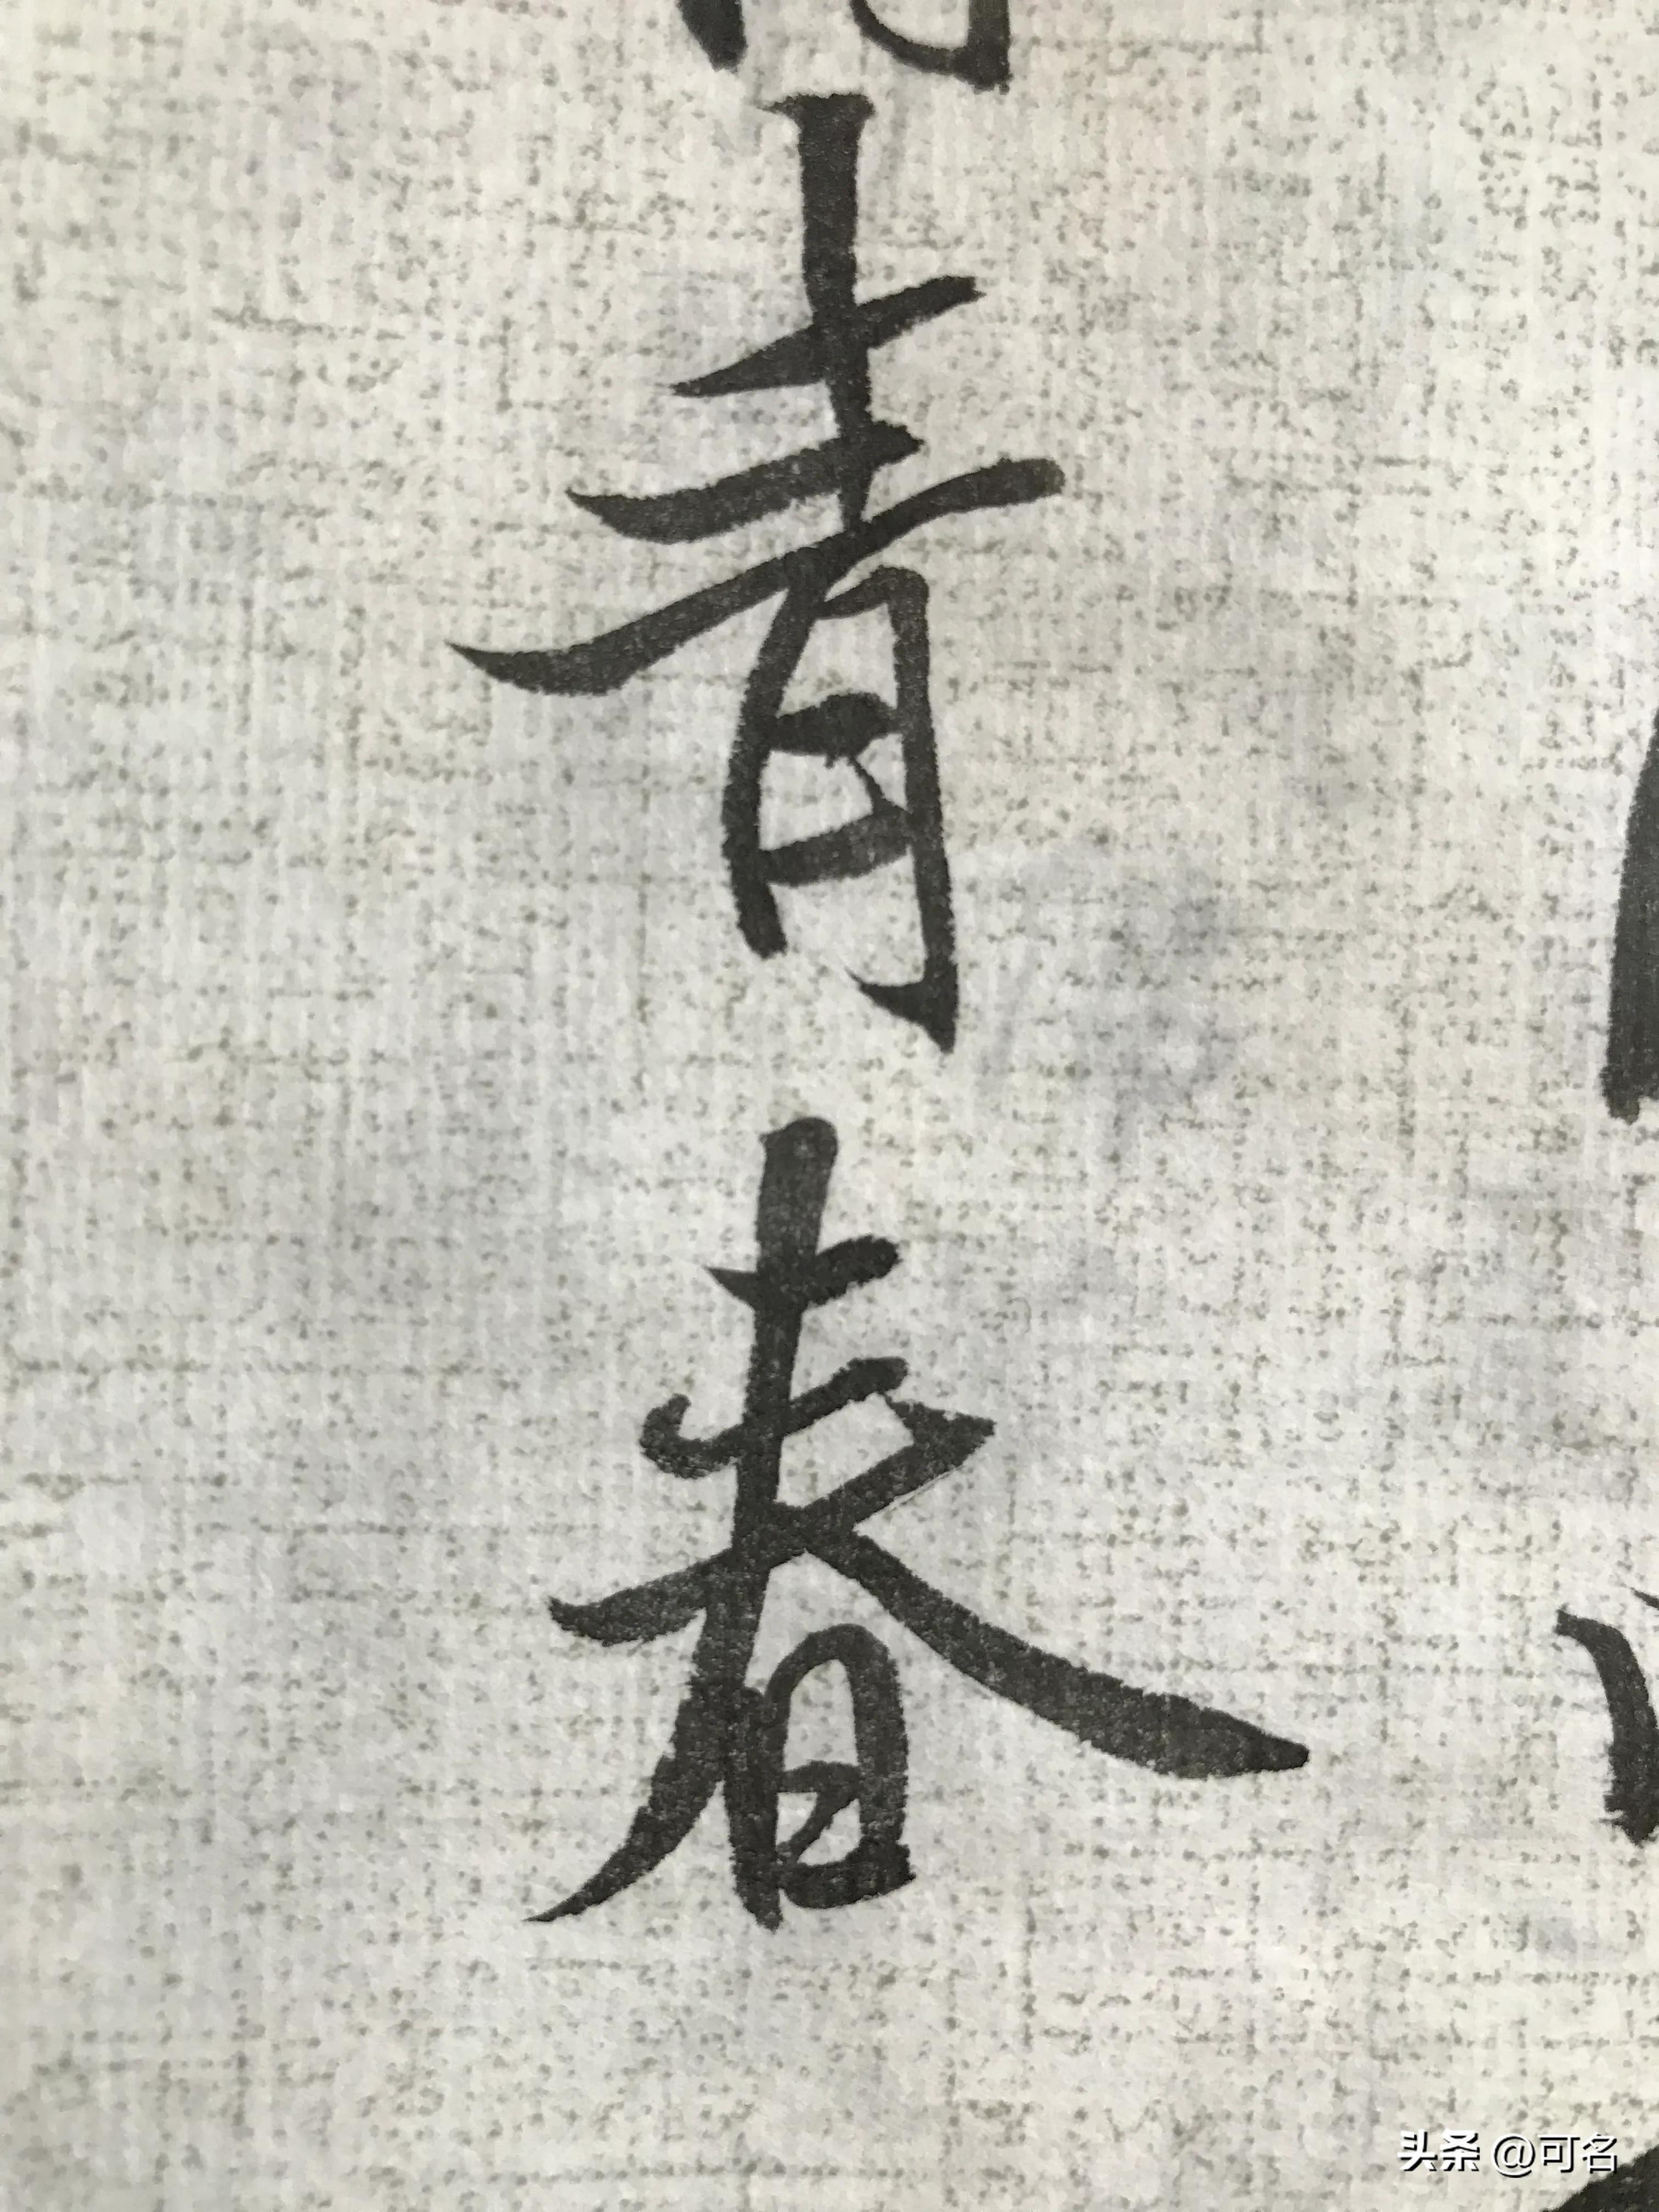 青春
头条 @可名